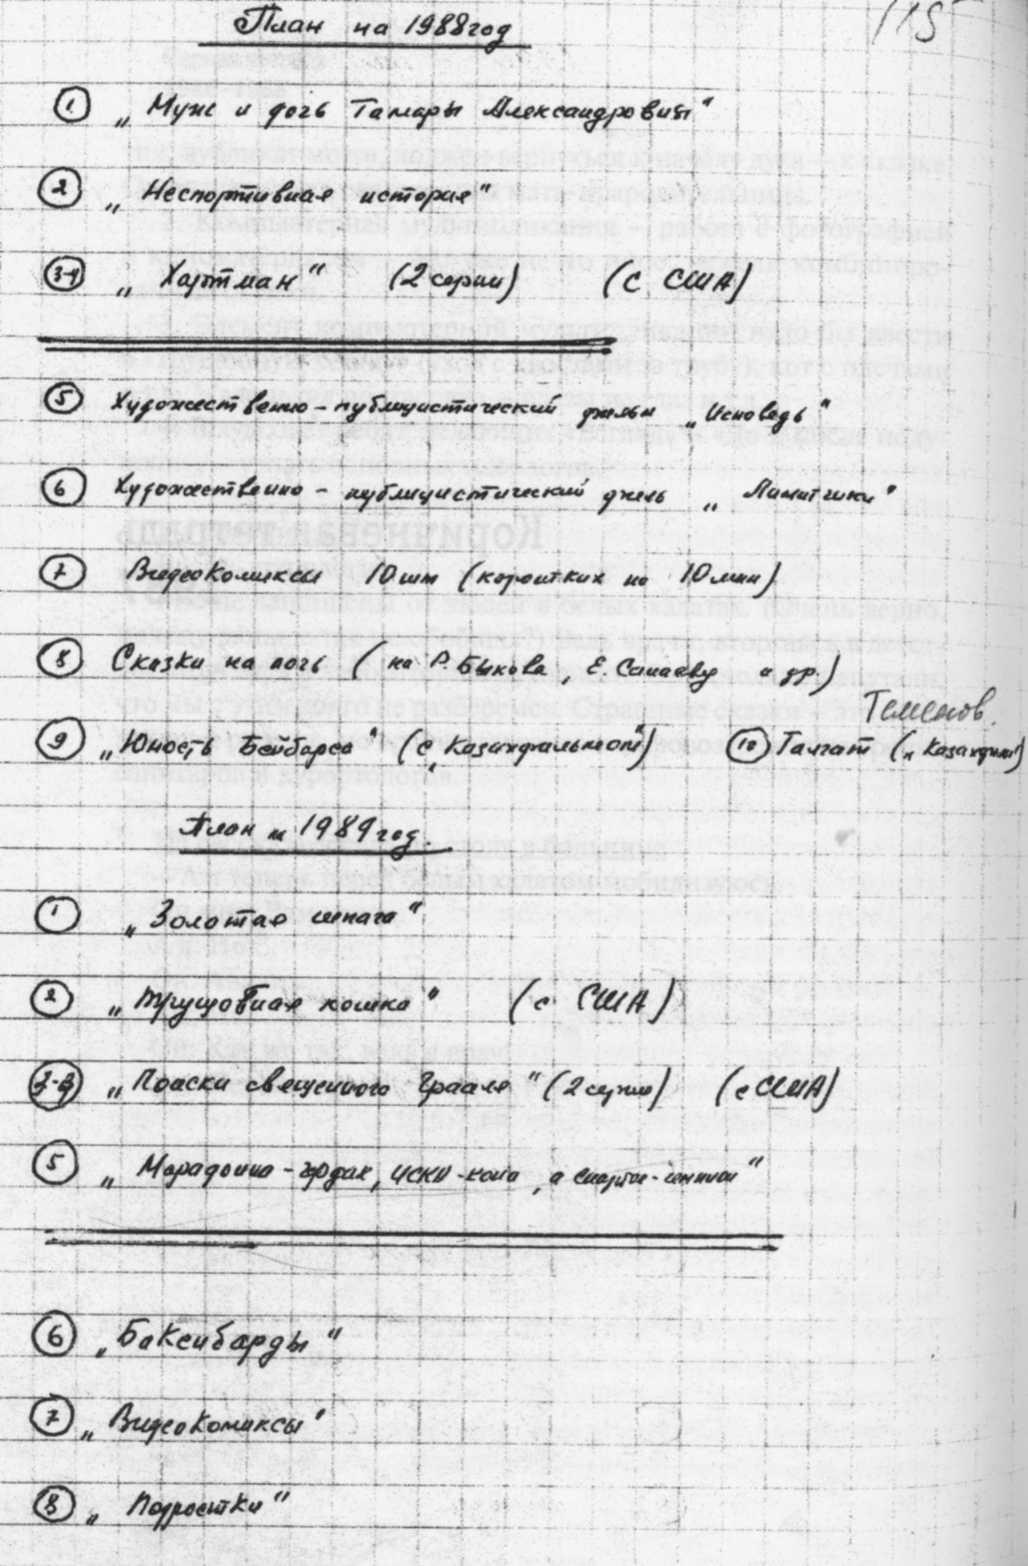 План на 1988 год
115
① „Муж и дочь Тамары Александровны“
② „Неспортивная история“
3-4 „Хартман“ (2 серии) (с США)
⑤ Художественно-публицистический фильм „Исповедь“
⑥ Художественно-публицистический фильм „Лимитчики“
⑦ Видеокомиксы 10 шт (коротких по 10 мин)
⑧ Сказки на ночь (по Р. Быкова, Е. Санаеву и др.)
Теменов.
⑨ „Юность Бейбарса“ (с „Казахфильмом“) ⑩ Талгат („Казахфильм“)
План на 1989 год
① „Золотая шпага“
② „Трущобная кошка“ (с США)
3-4 „Поиски священного Грааля“ (2 серии) (с США)
⑤ „Марадонна - , ЦСКА - , а Спартак - чемпион“
⑥ „Баксибарды“
⑦ „Видеокомиксы“
⑧ „Подростки“
Коричневая тетрадь